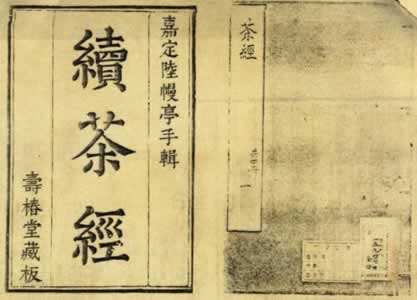 嘉定陸幔亭手輯
續茶經
壽椿堂藏板
茶經
一